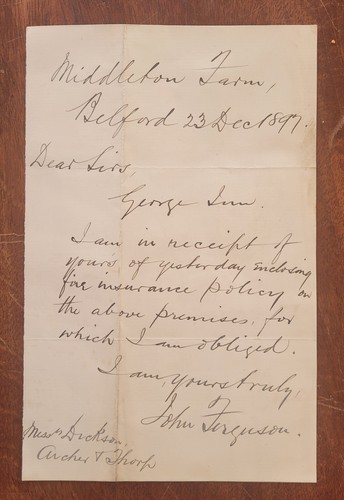 Middleton Farm,
Belford 23 Dec 1897.
Dear Sirs,
George Inn.
I am in receipt of
yours of yesterday enclosing
fire insurance policy on
the above premises, for
which I am obliged.
I am, yours truly,
John Ferguson.
Messrs Dickson,
Archer & Thorp